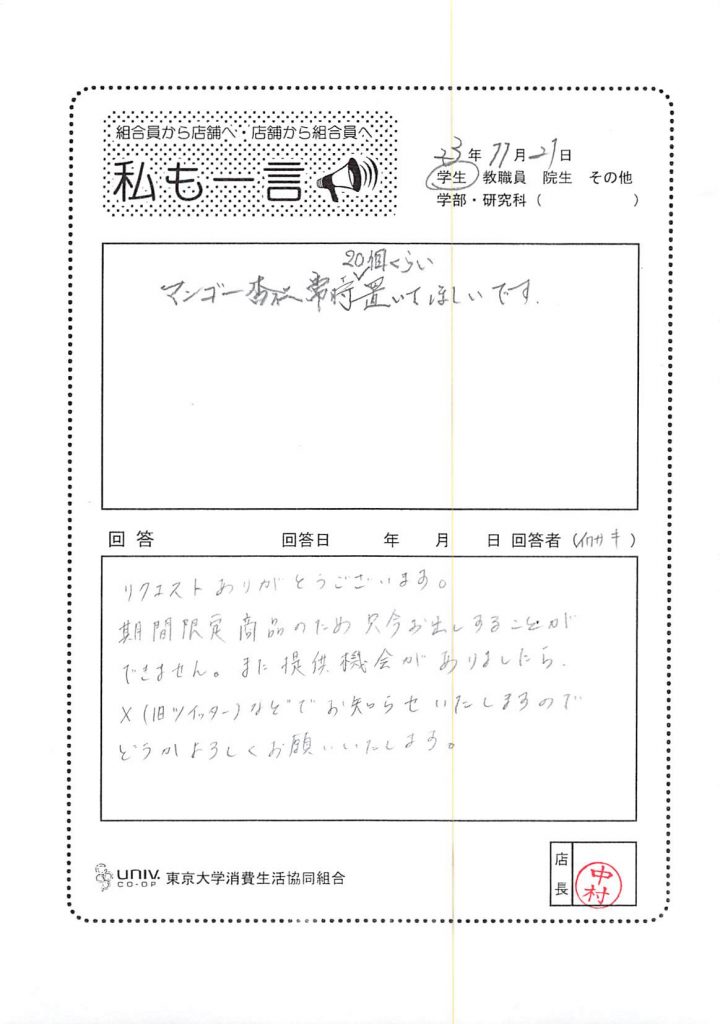 組合員から店舗へ・店舗から組合員へ
私も一言
23年11月21日
学生 教職員 院生 その他
学部・研究科（ ）
20個くらい
マンゴー杏仁常時置いてほしいです.
回答 回答日 年 月 日 回答者（ キ）
リクエストありがとうございます。
期間限定商品のため只今お出しすることが
できません。また提供機会がありましたら、
X(旧ツイッター)などでお知らせいたしますので
どうかよろしくお願いいたします。
UNIV.
CO-OP
東京大学消費生活協同組合
店長
中村